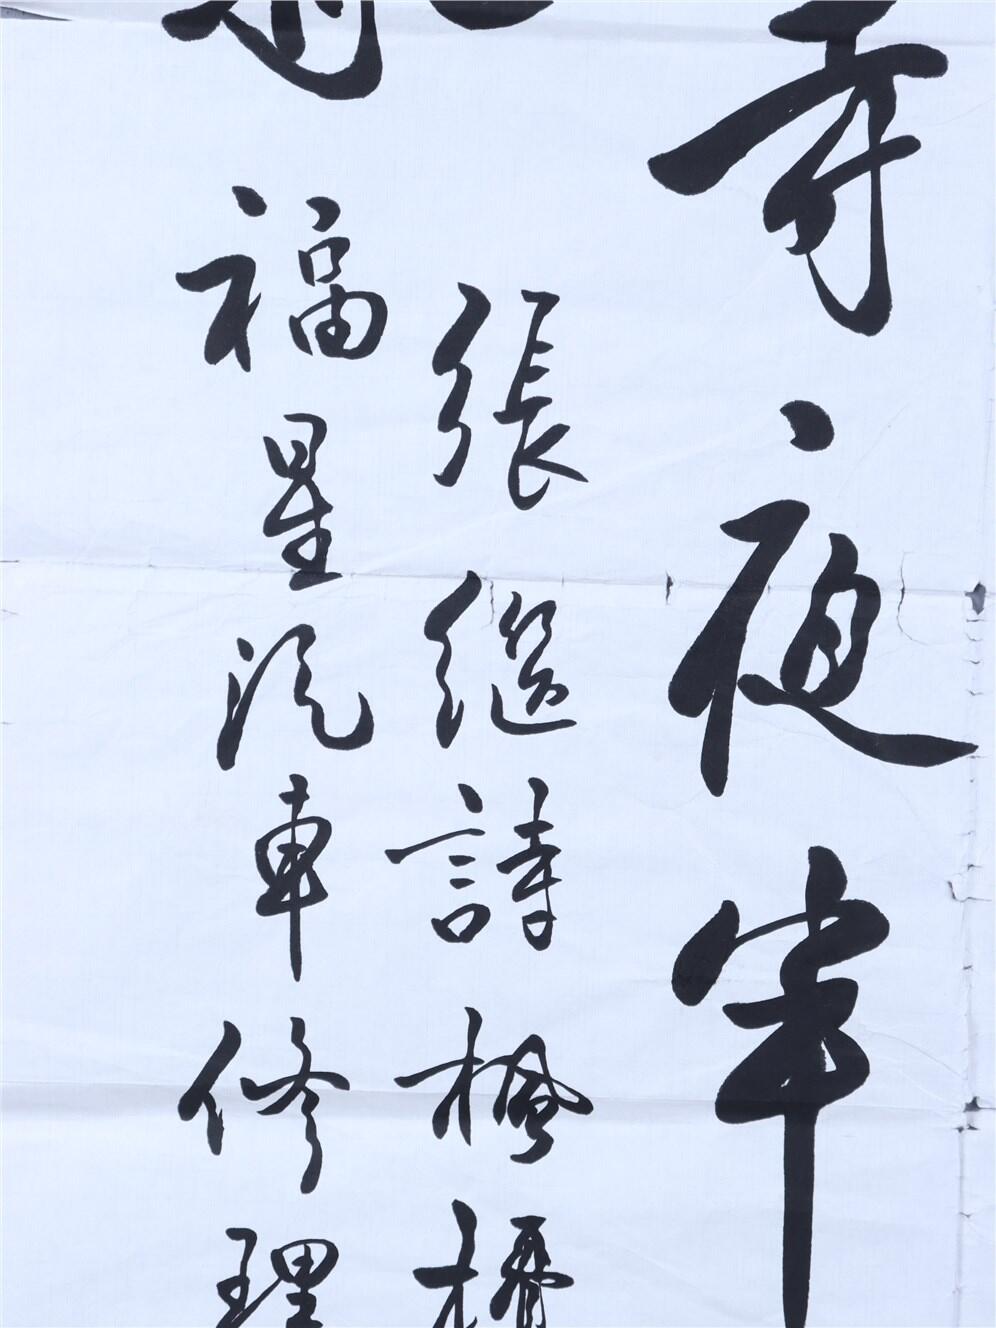 寺夜半
張繼詩楓橋
福星汽車修理